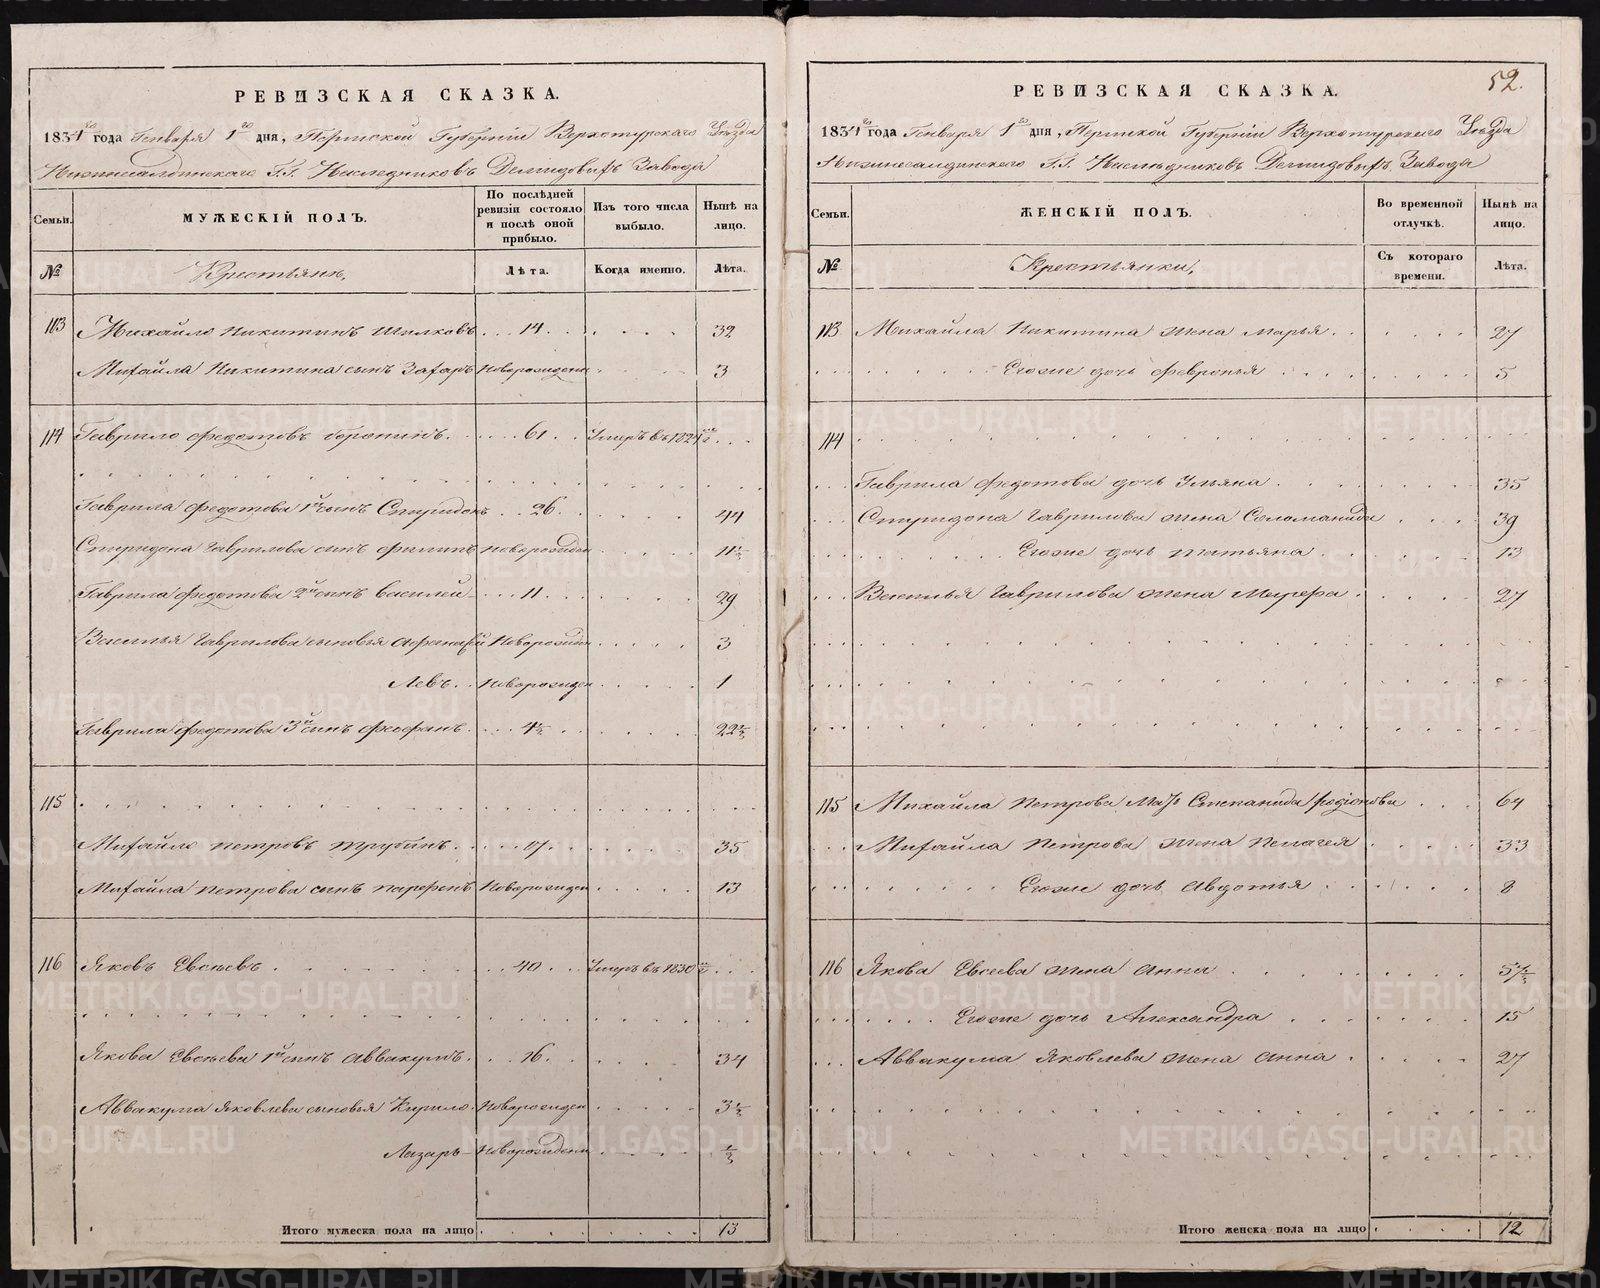 РЕВИЗСКАЯ СКАЗКА.
1834го года Генваря 1го дня, Пермской Губерніи Верхотурскаго Уѣзда
Нижнесалдинскаго Г.Г. Наследниковъ Демидовыхъ Завода
Семьи.
МУЖЕСКІЙ ПОЛЪ.
По послѣдней ревизіи состояло и послѣ оной прибыло.
Изъ того числа выбыло.
Нынѣ на лицо.
№
Крестьянъ,
Лѣта.
Когда именно.
Лѣта.
113 Михайло Никитинъ 14. 32
Михайла Никитина сынъ Захаръ Новорожденн 3
114 Гаврило Федотовъ 61. Умеръ въ 1824мъ г.
Гаврила Федотова 1й сынъ Спиридонъ 26. 44
Спиридона Гаврилова сынъ Филипъ Новорожден 11½
Гаврила Федотова 2й сынъ Василей 11. 29
Василья Гаврилова сыновья Афанасей Новорожден 3
Левъ. Новорожден 1
Гаврила Федотова 3й сынъ Феофанъ. 4½ 22½
115
Михайло Петровъ Трубинъ. 17. 35
Михайла Петрова сынъ Парфенъ Новорожден 13
116 Яковъ Евсѣевъ. 40. Умеръ въ 1830мъ г.
Якова Евсѣева 1й сынъ Аввакумъ. 16. 34
Аввакума Яковлева сыновья Кирило. Новорожден 3½
Лазарь Новорожденн ½
Итого мужеска пола на лицо 13
52.
РЕВИЗСКАЯ СКАЗКА.
1834го года Генваря 1го дня, Пермской Губерніи Верхотурскаго Уѣзда
Нижнесалдинскаго Г.Г. Наслѣдниковъ Демидовыхъ Завода
Семьи.
ЖЕНСКІЙ ПОЛЪ.
Во временной отлучкѣ.
Нынѣ на лицо.
№
Крестьянки,
Съ котораго времени.
Лѣта.
113 Михайла Никитина жена Марья. 27
Егоже дочь Февронья 5
114
Гаврила Федотова дочь Ульяна 35
Спиридона Гаврилова жена Соломанида 39
Егоже дочь Татьяна 13
Василья Гаврилова жена Марфа. 27
115 Михайла Петрова Мать Степанида Родіонова 64
Михайла Петрова жена Пелагея 33
Егоже дочь Авдотья 8
116 Якова Евсеева жена Анна 57½
Егоже дочь Александра 15
Аввакума Яковлева жена Анна 27
Итого женска пола на лицо 12
METRIKI.GASO-URAL.RU